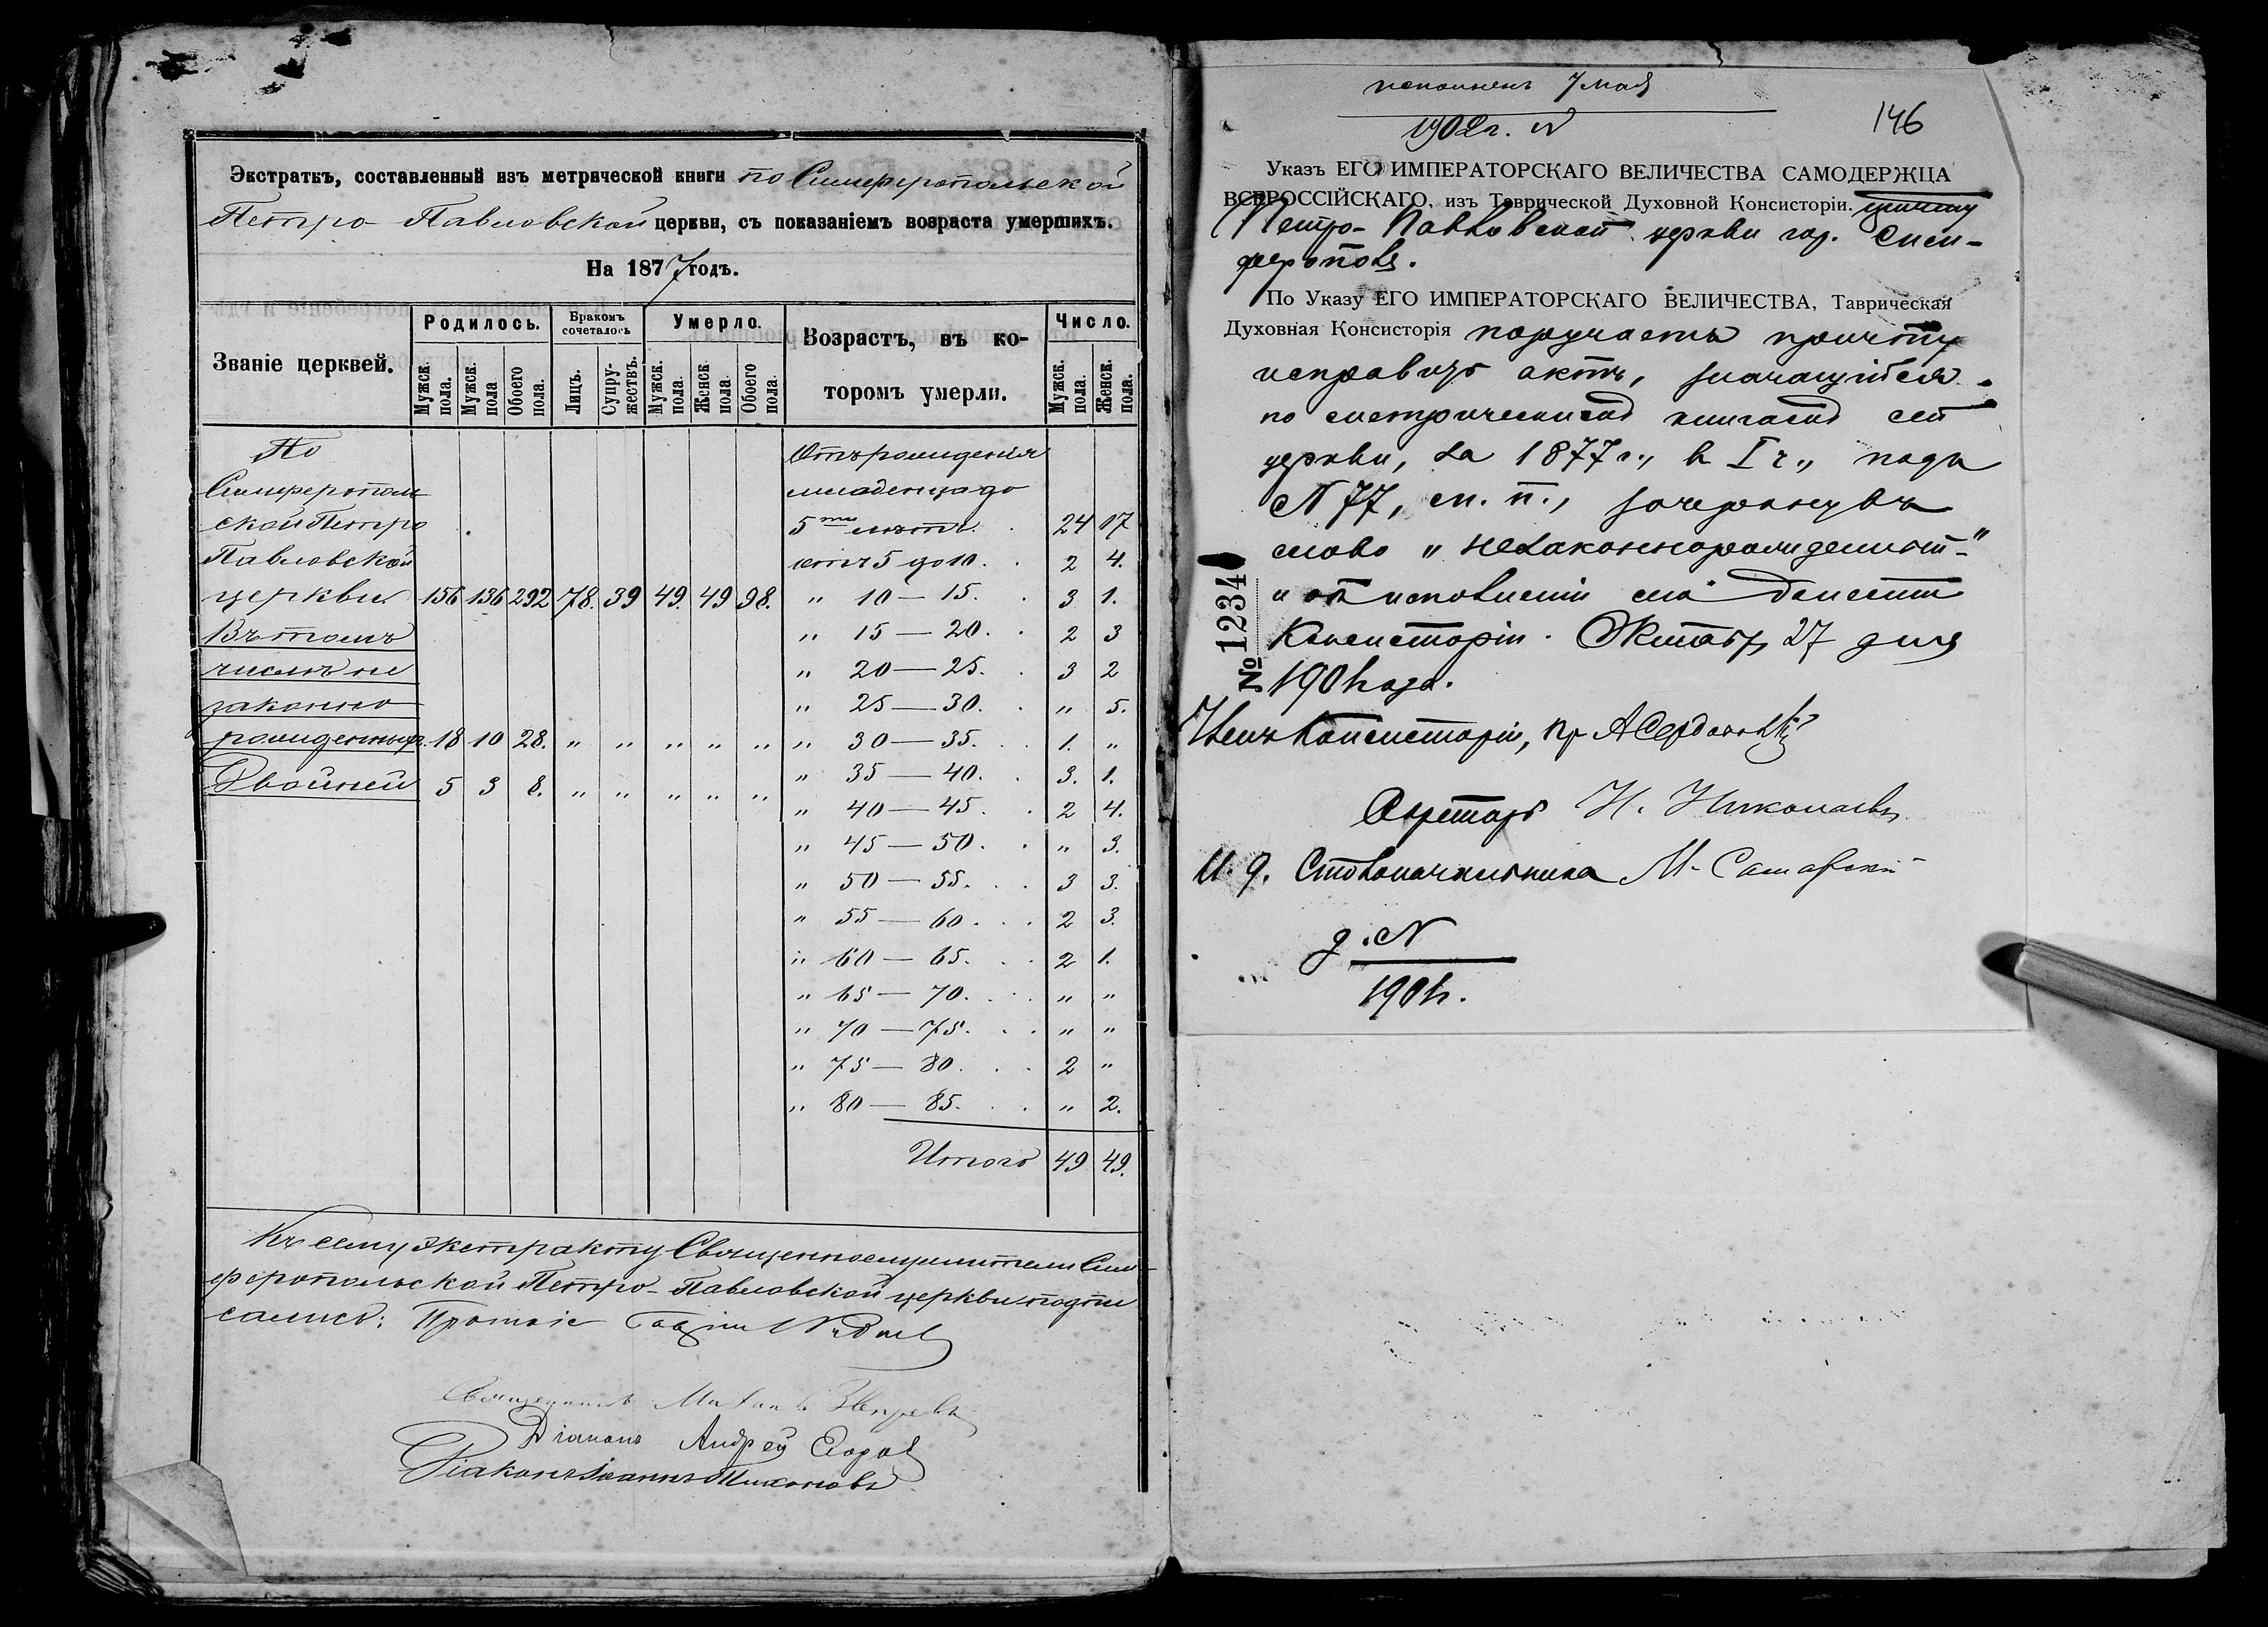 Экстрактъ, составленный изъ метрической книги по Симферопольской
Петро-Павловской церкви, съ показаніемъ возраста умершихъ.
На 1877 годъ.
Званіе церквей. Родилось. Бракомъ сочеталось Умерло. Возрастъ, въ которомъ умерли. Число.
Мужск. пола. Мужск. пола Обоего пола. Лицъ. Супружествъ. Мужск. пола. Женск. пола. Обоего пола. Мужск. пола. Женск. пола.
По Отъ рожденія
Симферополь младенца до
ской Петро 5ти лѣтъ. 24 17
Павловской отъ 5 до 10. 2 4.
церкви 156 136 292 78. 39 49. 49 98. " 10 — 15. 3 1.
Въ томъ " 15 — 20. 2 3
числѣ не " 20 — 25. 3 2
законно " 25 — 30. " 5.
рожденныхъ. 18 10 28. " " " " " " 30 — 35. 1. "
Двойней 5 3 8. " " " " " " 35 — 40. 3. 1.
" 40 — 45. 2 4.
" 45 — 50. " 3.
" 50 — 55. 3 3.
" 55 — 60. 2 3.
" 60 — 65. 2 1.
" 65 — 70. " "
" 70 — 75. " "
" 75 — 80. 2 "
" 80 — 85. " 2.
Итого 49 49.
Къ сему экстракту Священнослужители Сим
феропольской Петро-Павловской церкви подпи
сались:
Священникъ Михаилъ
Діаконъ Андрей
Діаконъ Іоаннъ Тихоновъ
исполненъ 7 мая
1902 г. N
146
Указъ ЕГО ИМПЕРАТОРСКАГО ВЕЛИЧЕСТВА САМОДЕРЖЦА
ВСЕРОССІЙСКАГО, изъ Таврической Духовной Консисторіи. причту
Петро-Павловской церкви гор. Сим-
ферополя.
По Указу ЕГО ИМПЕРАТОРСКАГО ВЕЛИЧЕСТВА, Таврическая
Духовная Консисторія поручаетъ причту
исправить актъ, значащійся
по метрическимъ книгамъ сей
церкви, за 1877 г., в I ч., подъ
N 77, м. п., зачеркнувъ
слово "незаконнорожденный"
и объ исполненіи сего донести
Консисторіи. Октября 27 дня
1901 года.
№ 1234
Членъ Консисторіи, пр А Сердобольскій
Секретарь Н. Николаевъ
И. д. Столоначальника М.
д. N
1901 г.